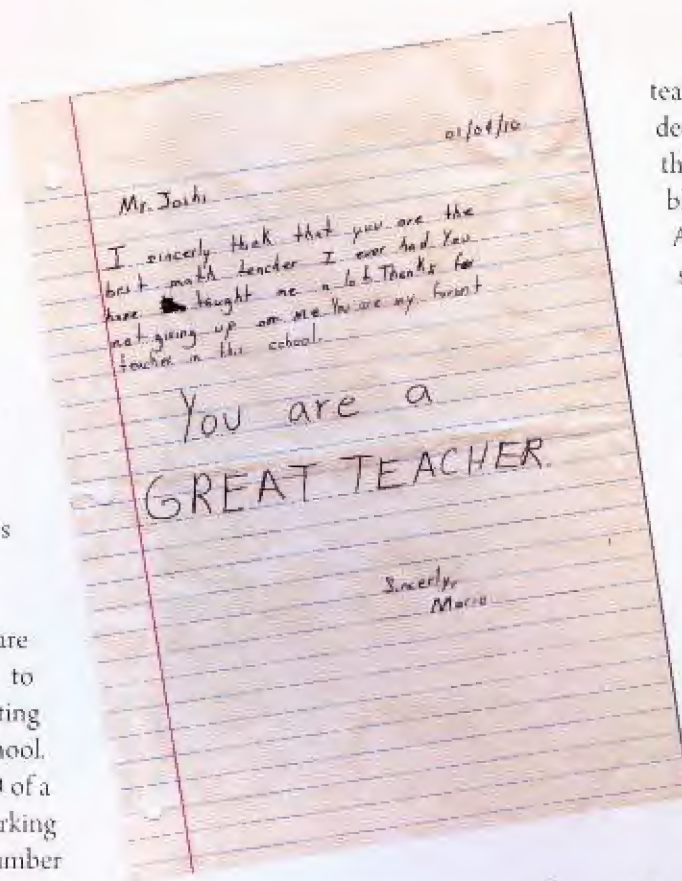 01/04/10
Mr. Joshi
I sincerly think that you are the
best math teacher I ever had You
have taught me a lot. Thanks for
not giving up on me You are my favorit
teacher in this school.
You are a
GREAT TEACHER.
Sincerly,
Mario
s
to
of a